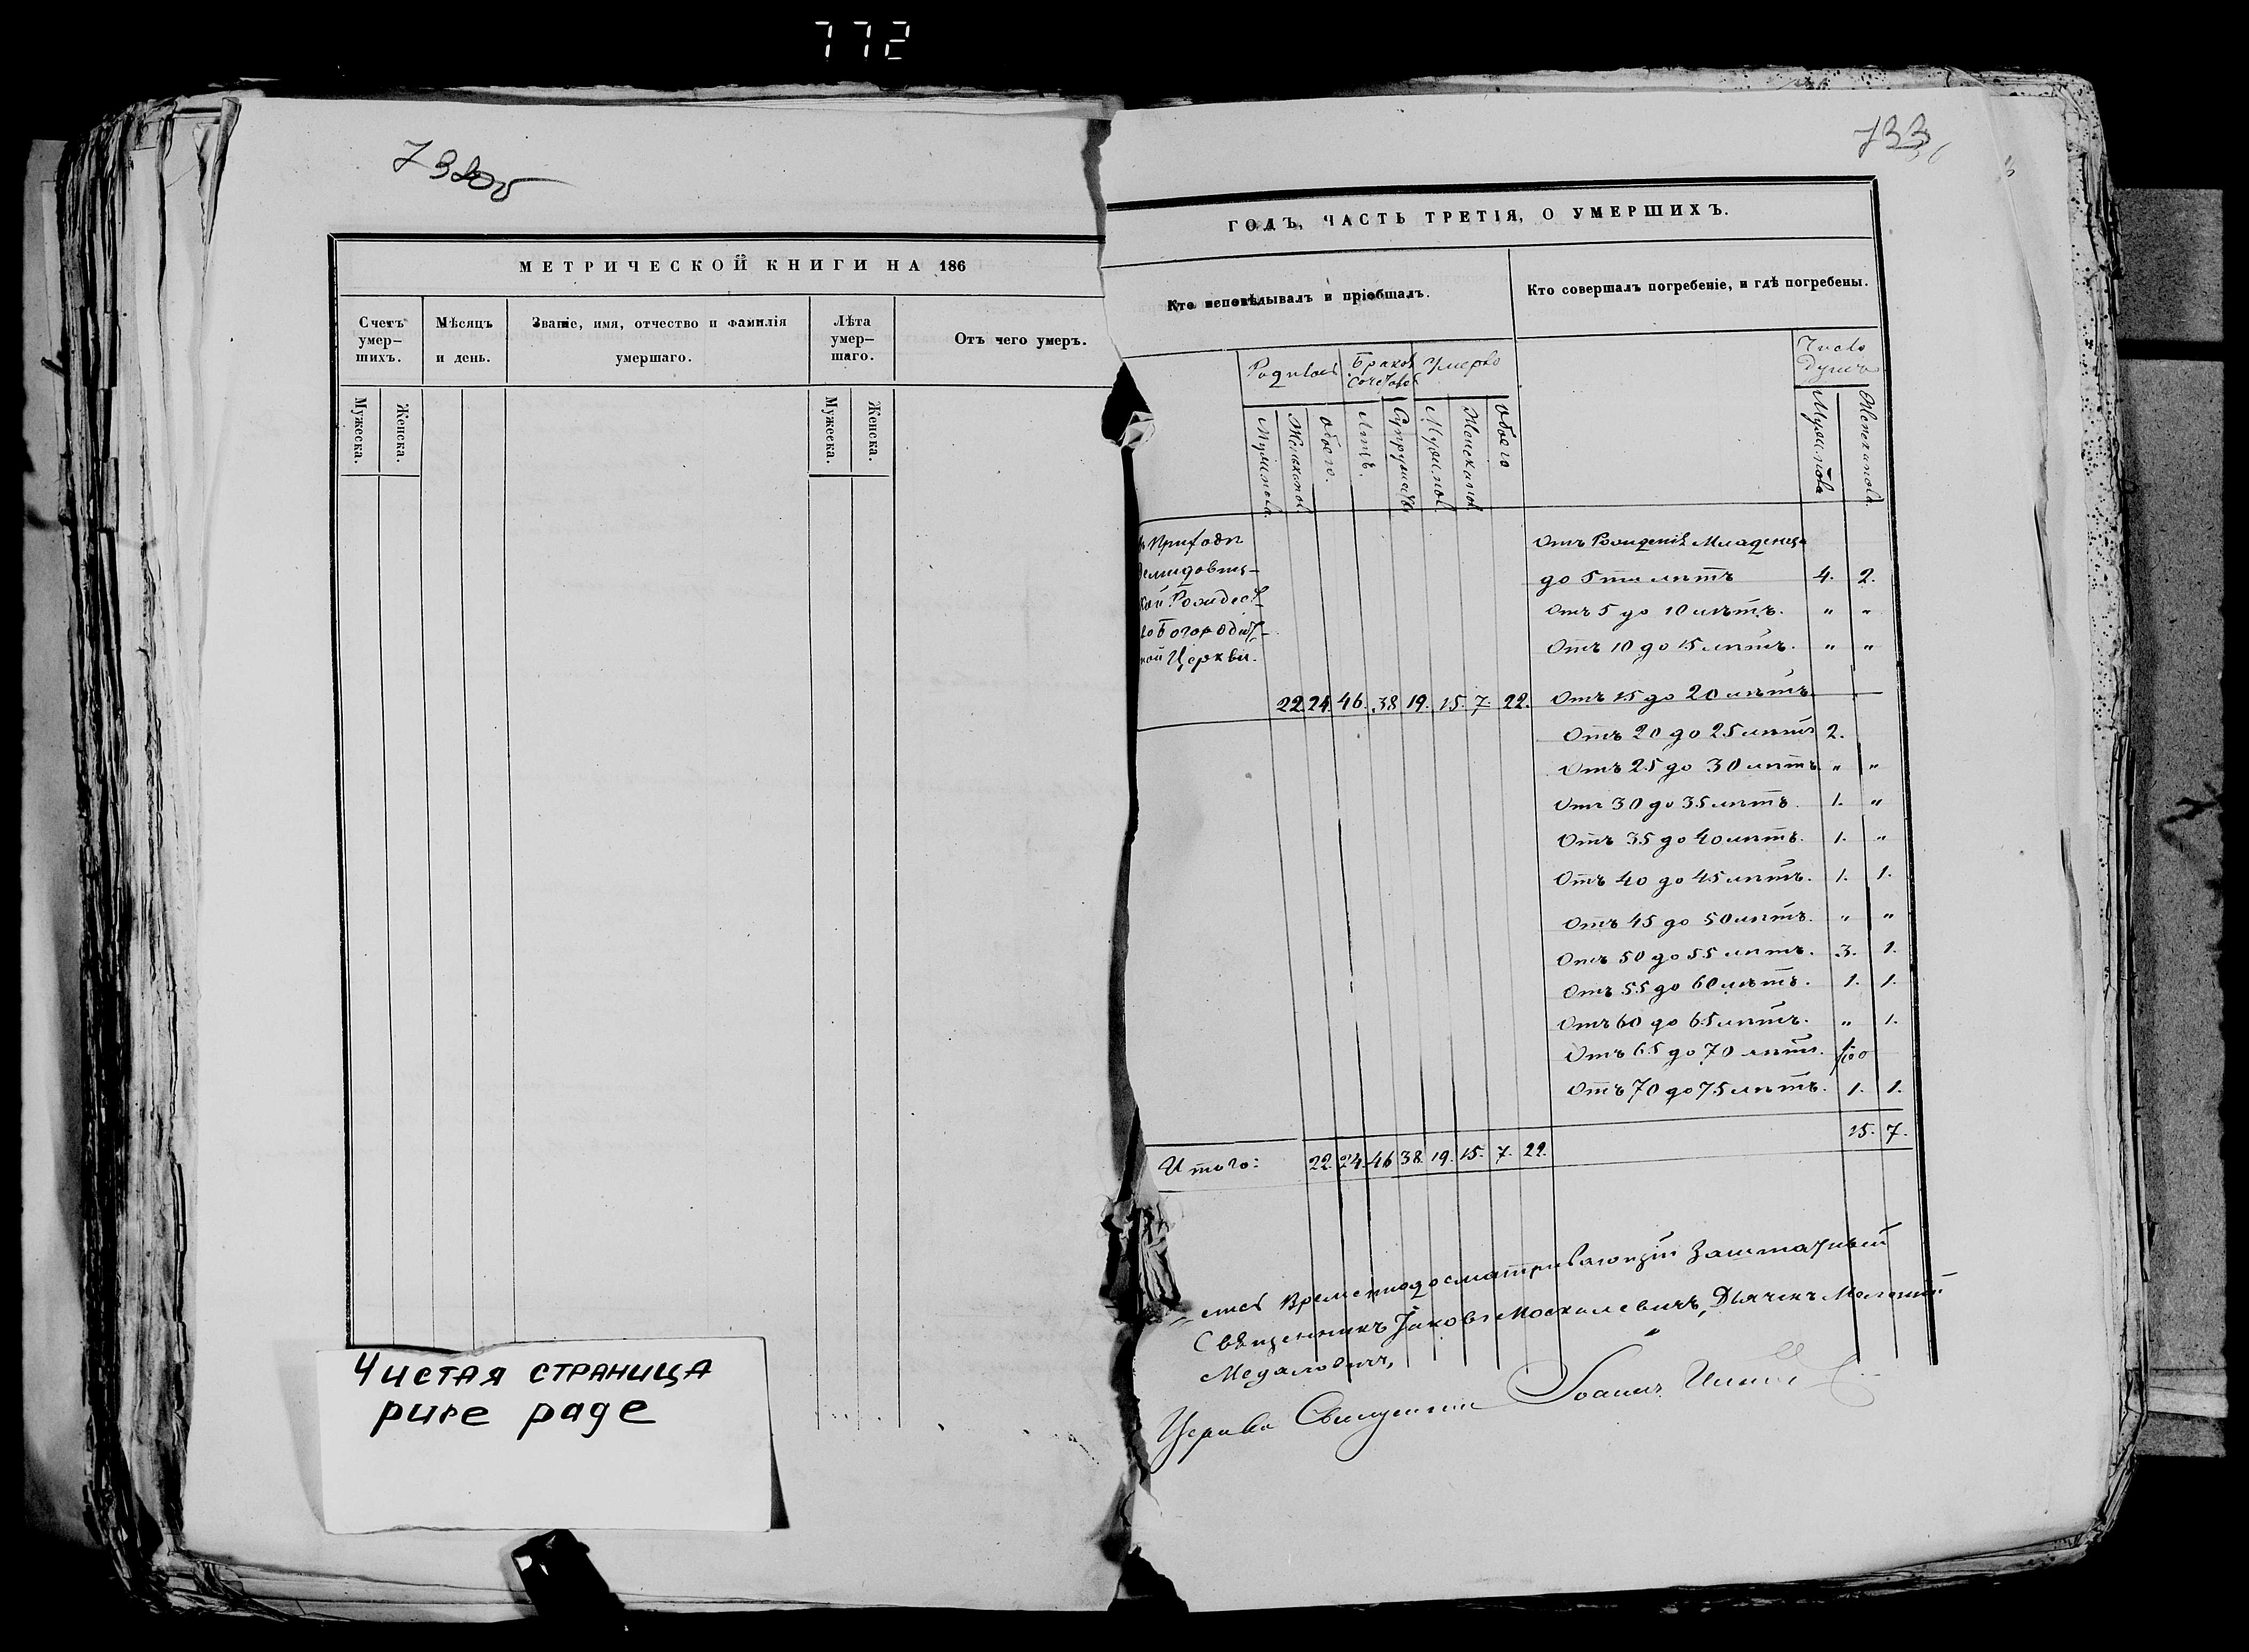 772
732об
МЕТРИЧЕСКОЙ КНИГИ НА 186
Счетъ умер-шихъ.
Мѣсяцъ и день.
Званіе, имя, отчество и фамилія умершаго.
Лѣта умер-шаго.
Отъ чего умеръ.
Мужеска.
Женска.
Мужеска.
Женска.
Чистая страница
pure page
733
ГОДЪ, ЧАСТЬ ТРЕТІЯ, О УМЕРШИХЪ.
Кто исповѣдывалъ и пріобщалъ.
Кто совершалъ погребеніе, и гдѣ погребены.
Родилось
Браков сочетов
Умерло
Число Душъ
Мужеск.
Женска
обоего.
Лицъ.
Супружествъ
Мужск.
Женска
обоего
Мужеска
Женска
Приходѣ
Рождест-
Богородич-
ной Церкви.
22. 24. 46. 38 19. 15. 7. 22.
Отъ Рожденія Младенца
до 5ти лѣтъ 4. 2.
Отъ 5 до 10 лѣтъ. " "
Отъ 10 до 15 лѣтъ. " "
Отъ 15 до 20 лѣтъ
Отъ 20 до 25 лѣтъ 2.
Отъ 25 до 30 лѣтъ " "
Отъ 30 до 35 лѣтъ. 1. "
Отъ 35 до 40 лѣтъ. 1. "
Отъ 40 до 45 лѣтъ. 1. 1.
Отъ 45 до 50 лѣтъ. " "
Отъ 50 до 55 лѣтъ. 3. 1.
Отъ 55 до 60 лѣтъ. 1. 1.
Отъ 60 до 65 лѣтъ. " 1.
Отъ 65 до 70 лѣтъ.
Отъ 70 до 75 лѣтъ. 1. 1.
15. 7.
Итого: 22. 24. 46 38. 19. 15. 7. 22.
Заштатный
Священникъ Іаковъ Москалевичъ, Дьячекъ
Церкви Священникъ Іоаннъ